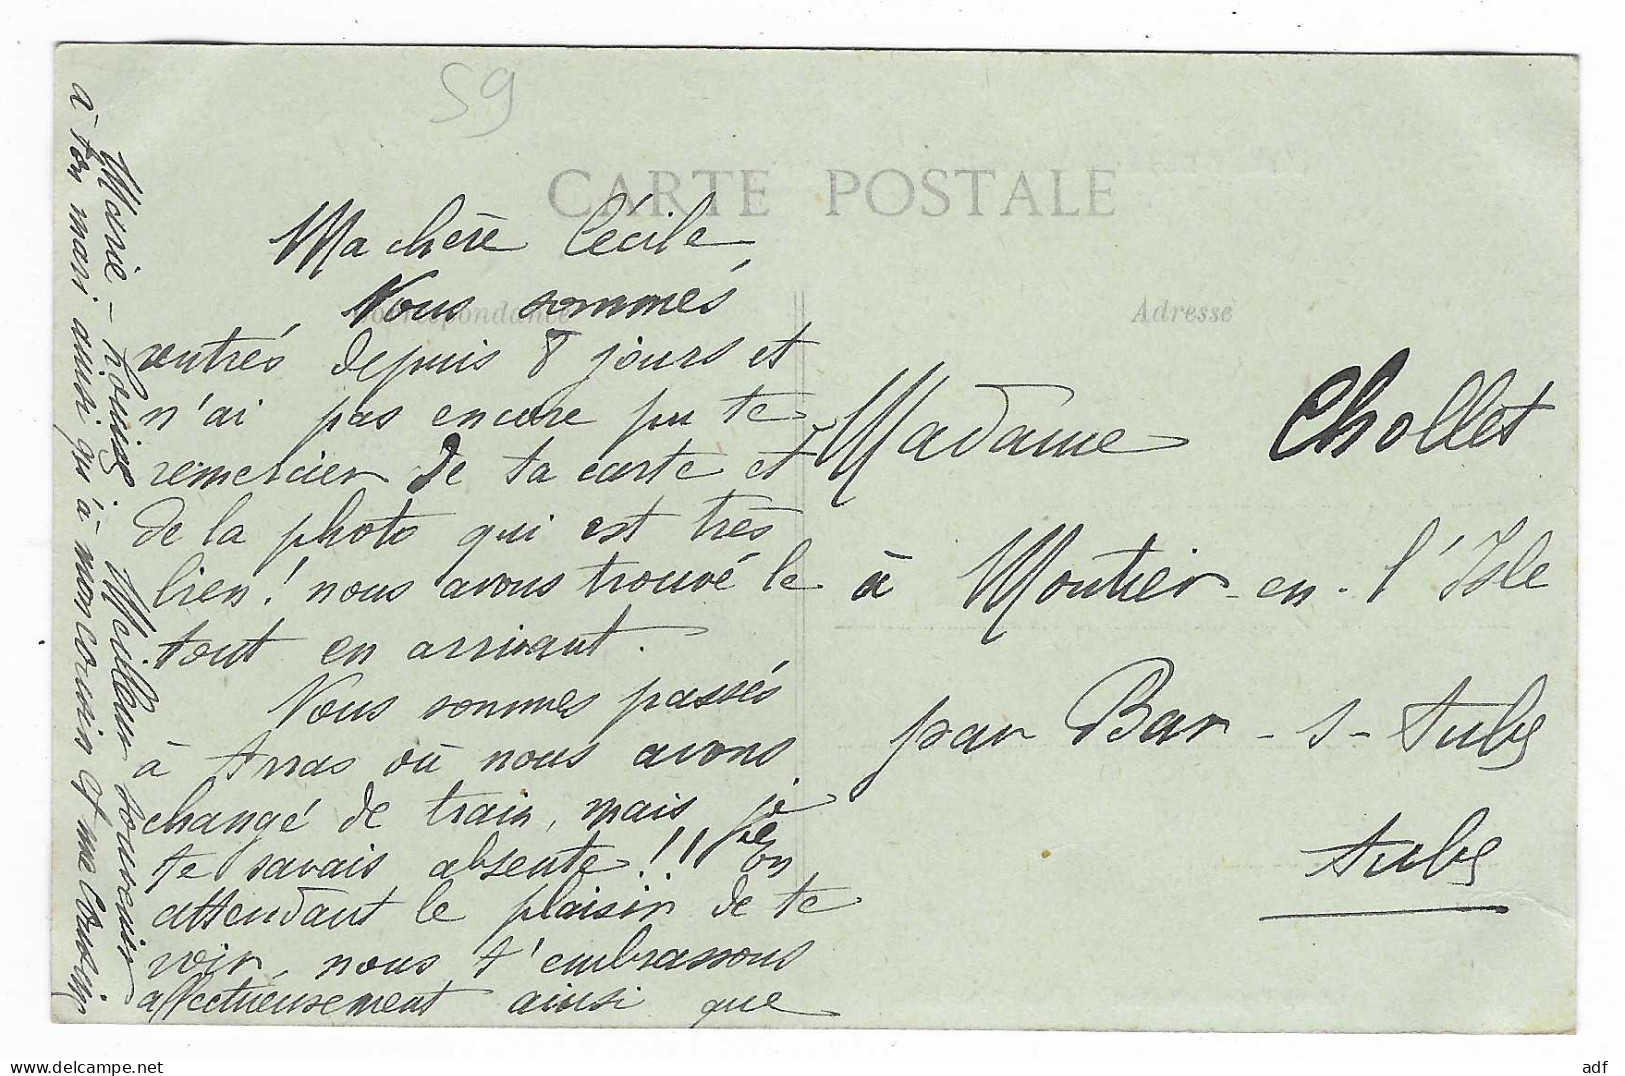 59
CARTE POSTALE
Correspondance
Adresse
Ma chère Cécile
Nous sommes
rentrés depuis 8 jours et
n'ai pas encore pu te
remercier de ta carte et
de la photo qui est très
bien! nous avons trouvé le
tout en arrivant.
Nous sommes passés
à Arras où nous avons
changé de train, mais je
te savais absente!! En
attendant le plaisir de te
voir, nous t'embrassons
affectueusement ainsi que
Marie-Louise. Meilleur souvenir
à ton mari ainsi qu'à mon cousin et une Cousin
Madame Chollet
à Montier-en-l'Isle
par Bar-s-Aube
Aube
www.delcampe.net
adf